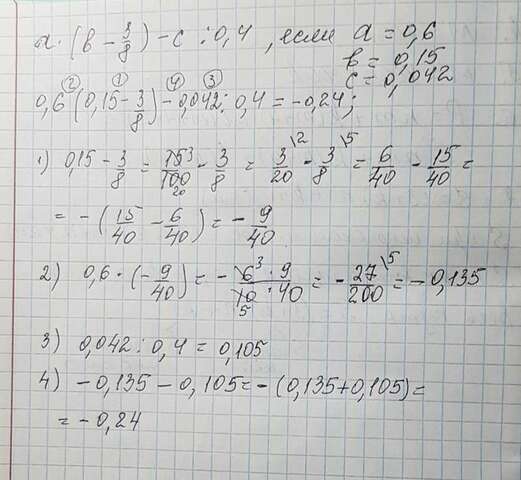 a · (b - 3/8) - c : 0,4, если a = 0,6
b = 0,15
c = 0,042
② ① ④ ③
0,6 (0,15 - 3/8) - 0,042 : 0,4 = -0,24;
1) 0,15 - 3/8 = 15³/100 20 - 3/8 = 3/20 \2 - 3/8 \5 = 6/40 - 15/40 =
= - (15/40 - 6/40) = - 9/40
2) 0,6 · (- 9/40) = - 6³ · 9/10 5 · 40 = - 27/200 \5 = - 0,135
3) 0,042 : 0,4 = 0,105
4) - 0,135 - 0,105 = - (0,135 + 0,105) =
= - 0,24